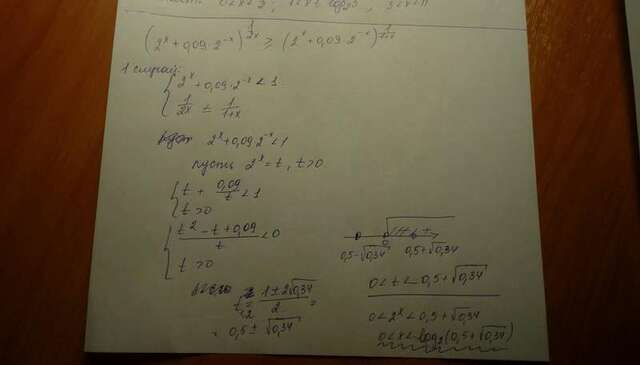 0<x<2, 1<x<log₂3, 3<x<11
(2^x + 0,09·2^-x)^(1/2x) ≥ (2^x + 0,09·2^-x)^(1/(x+1))
1 случай:
{ 2^x + 0,09·2^-x < 1
1/2x ≤ 1/(1+x)
2^x + 0,09·2^-x < 1
пусть 2^x = t, t>0
{ t + 0,09/t < 1
t>0
{ (t² - t + 0,09)/t < 0
t>0
t₁,₂ = (1 ± 2√0,34)/2 =
= 0,5 ± √0,34
0,5-√0,34 0 0,5+√0,34
0 < t < 0,5 + √0,34
0 < 2^x < 0,5 + √0,34
0 < x < log₂(0,5 + √0,34)